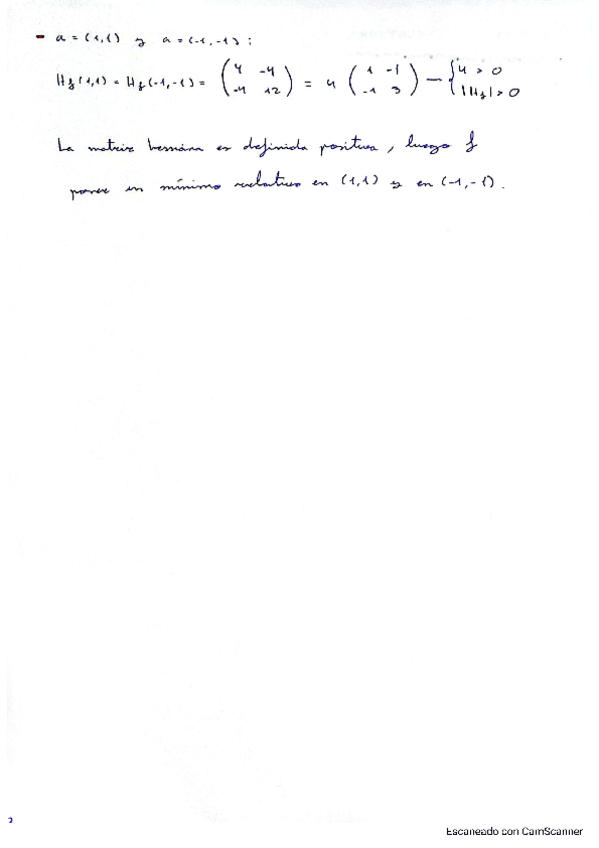 - a = (1,1) y a = (-1,-1):
Hf(1,1) = Hf(-1,-1) = (4 -4 -4 12) = 4 (1 -1 -1 3) — {4 > 0 |Hf| > 0
La matriz hessiana es definida positiva, luego f
posee un mínimo relativo en (1,1) y en (-1,-1).
2
Escaneado con CamScanner